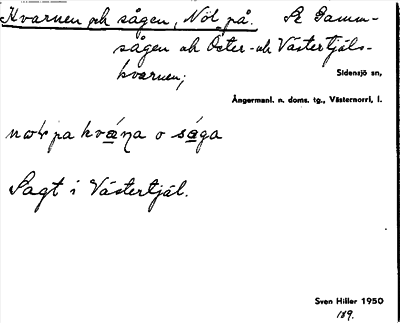 Kvarnen och sågen, Nöl på. Se Damm-
sågen och Öster- och Västertjäls-
kvarnen;
Sidensjö sn,
Ångermanl. n. doms. tg., Västernorrl. l.
pa kvána o sága
Sagt i Västertjäl.
Sven Hiller 1950
189.